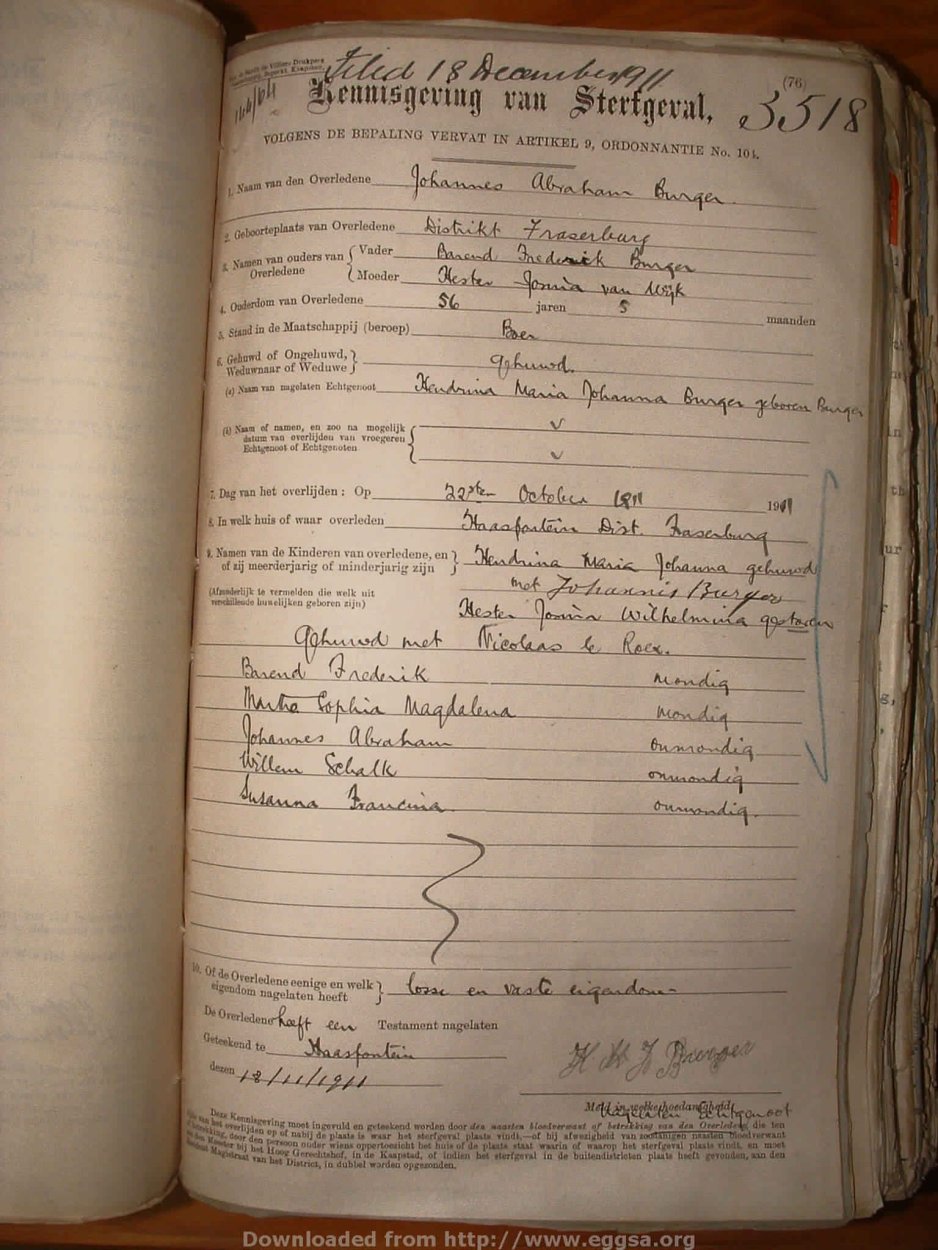 Filed 18 December 1911
(76)
3518
Kennisgeving van Sterfgeval,
VOLGENS DE BEPALING VERVAT IN ARTIKEL 9, ORDONNANTIE No. 104.
1. Naam van den Overledene Johannes Abraham Burger.
2. Geboorteplaats van Overledene Distrikt Fraserburg
3. Namen van ouders van Overledene { Vader Barend Frederick Burger
Moeder Hester Josina van Wijk
4. Ouderdom van Overledene 56 jaren 5 maanden
5. Stand in de Maatschappij (beroep) Boer
6. Gehuwd of Ongehuwd, Weduwnaar of Weduwe } gehuwd.
(a) Naam van nagelaten Echtgenoot Hendrina Maria Johanna Burger geboren Burger
(b) Naam of namen, en zoo na mogelijk
datum van overlijden van vroegeren
Echtgenoot of Echtgenoten
7. Dag van het overlijden: Op 22sten October 1911 1911
8. In welk huis of waar overleden Haasfontein Dist. Fraserburg
9. Namen van de Kinderen van overledene, en
of zij meerderjarig of minderjarig zijn } Hendrina Maria Johanna gehuwd
(Afzonderlijk te vermelden die welk uit
verschillende huwelijken geboren zijn)
met Johannis Burger
Hester Josina Wilhelmina gestorven
Gehuwd met Nicolaas le Roex.
Barend Frederik mondig
Martha Sophia Magdalena mondig
Johannes Abraham onmondig
Willem Schalk onmondig
Susanna Francina onmondig.
10. Of de Overledene eenige en welk
eigendom nagelaten heeft } losse en vaste eigendom
De Overledene heeft een Testament nagelaten
Geteekend te Haasfontein
dezen 18/11/1911
H M J Burger
Meld in welke hoedanigheid
Nagelaten Echtgenoot
Deze Kennisgeving moet ingevuld en geteekend worden door den naasten bloedverwant of betrekking van den Overledene, die ten
van het overlijden op of nabij de plaats is waar het sterfgeval plaats vindt,—of bij afwezigheid van zoodanigen naasten bloedverwant
of betrekking, door den persoon onder wiens oppertoezicht het huis of de plaats staat waarin of waarop het sterfgeval plaats vindt, en moet
aan den Meester bij het Hoog Gerechtshof, in de Kaapstad, of indien het sterfgeval in de buitendistricten plaats heeft gevonden, aan den
Magistraat van het District, in dubbel worden opgezonden.
Downloaded from http://www.eggsa.org